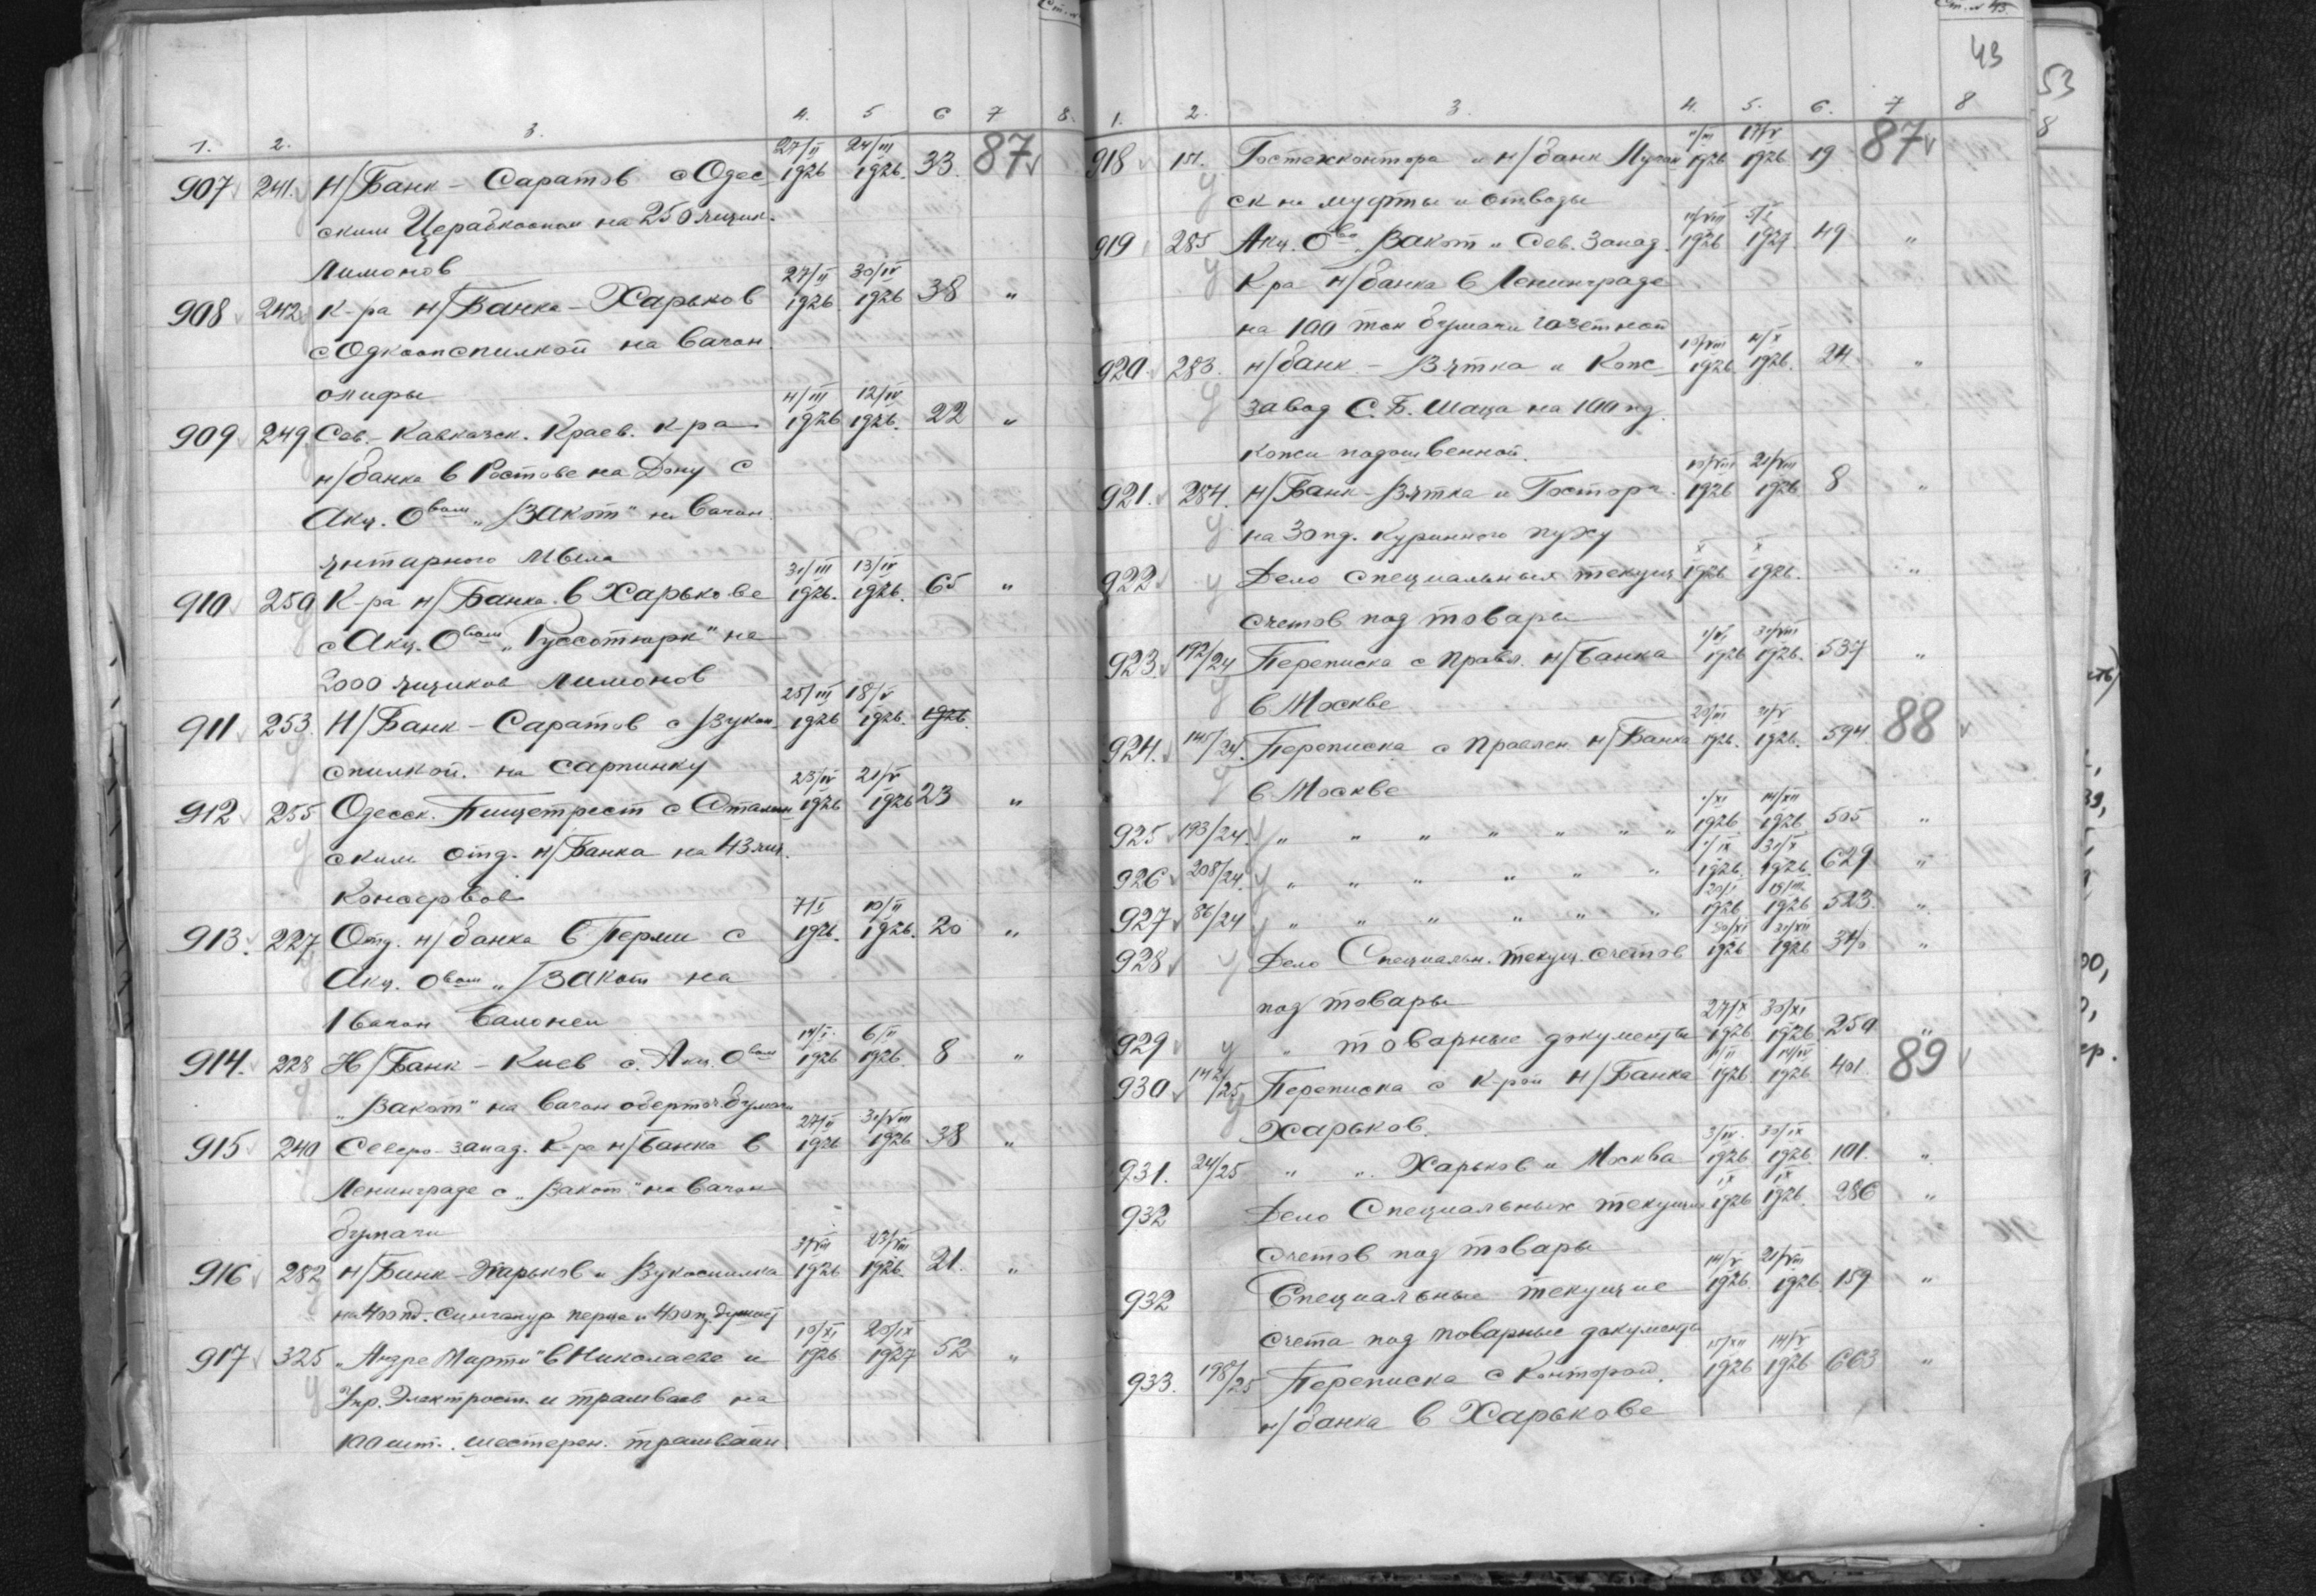 1. 2. 3. 4. 5 6 7 8.
907 241. Н/Банк - Саратов с Одес- 27/II 1926 24/III 1926. 33. 87
ским Церабкоопом на 250 ящик.
Лимонов
908 242 К-ра Н/Банка - Харьков 27/II 1926. 30/IV 1926 38 "
с Одкоопспилкой на вагон
олифы
909 249 Сев.-Кавказск. Краев. К-ра 4/III 1926 12/IV 1926. 22 "
н/банка в Ростове на Дону с
Акц. Овом "Закот" на вагон
янтарного мыла
910 250 К-ра Н/Банка в Харькове 31/III 1926. 13/IV 1926. 65 "
с Акц. Овом "Руссотюрк" на
2000 ящиков Лимонов
911 253. Н/Банк - Саратов с Вукоп- 25/III 1926 18/V 1926. 1926.
спилкой. на сарпинку
912 255 Одесск. Пищетрест с Сталин- 23/IV 1926 21/V 1926 23 "
ским отд. Н/Банка на 43 ящ.
Консервов
913. 227 Отд. н/банка в Перми с 7/I 1926. 10/II 1926. 20 "
Акц. Овом "Закот на
1 вагон
914. 228 Н/Банк - Киев с Акц. Овом 14/I 1926 6/II 1926. 8 "
"Закот" на вагон оберточ. бумаги
915 240 Северо-запад. К-ра Н/Банка в 27/II 1926 31/VIII 1926 38 "
Ленинграде с "Закот" на вагон
бумаги
916 282 Н/Банк - Харьков и Вукоспилка 3/VIII 1926 23/VIII 1926. 21. "
на 400 пд. сингапур перца и 400 пд. душист
917 325 "Андре Марти" в Николаеве и 10/XI 1926 20/IX 1927 52 "
Упр. Электрост. и трамваев на
100 шт. шестерен. трамвайн
Ст. № 43.
43
53
8
1. 2. 3. 4. 5. 6. 7 8
918 151. Гостехконтора и н/банк Луган- 1926 17/V 1926. 19 87
ск на муфты и отводы
919 285 Акц. Ово "Закот" и Сев. Запад. 1926 5/I 1927. 49 "
К-ра Н/банка в Ленинграде
на 100 тон бумаги газетной
920. 283. н/банк - Вятка и Кож- 10/VIII 1926 4/X 1926. 24. "
завод С. Б. Шаца на 100 пд.
кожи подошвенной.
921. 284. Н/Банк - Вятка и Госторг. 10/VIII 1926 21/VIII 1926 8 "
на 30 пд. Куриного пуху
922 Дело специальных текущ. X 1926 X 1926. "
счетов под товары
923. 192/24 Переписка с Правл. Н/Банка 1926 31/VIII 1926. 537 "
в Москве
924. 145/24. Переписка с Правлен. Н/Банка 1926. 31/V 1926. 594. 88
в Москве
925 193/24. " " " " " " " 1/XI 1926 14/XII 1926 505 "
926 208/24. " " " " " " 1/IX 1926. 31/X 1926. 629 "
927 86/24 " " " " " " 20/I 1926 19/III 1926 523. "
928 Дело Специальн. текущ. счетов 30/XI 1926 31/XII 1926 "
под товары
929 " товарные документы 27/X 1926. 30/XI 1926. 250 "
930 142/25 Переписка с К-рой Н/Банка 1926. 14/IV 1926. 401. 89
Харьков.
931. 24/25 " " Харьков и Москва 3/IV. 1926 30/IX 1926. 101. "
932 Дело Специальных текущих IX 1926 IX 1926. 286 "
счетов под товары
932 Специальные текущие 14/V 1926. 21/VIII 1926. 159 "
счета под товарные документы
933. 198/25 Переписка с Конторой. 15/XII 1926 14/V 1926 663 "
н/банка в Харькове